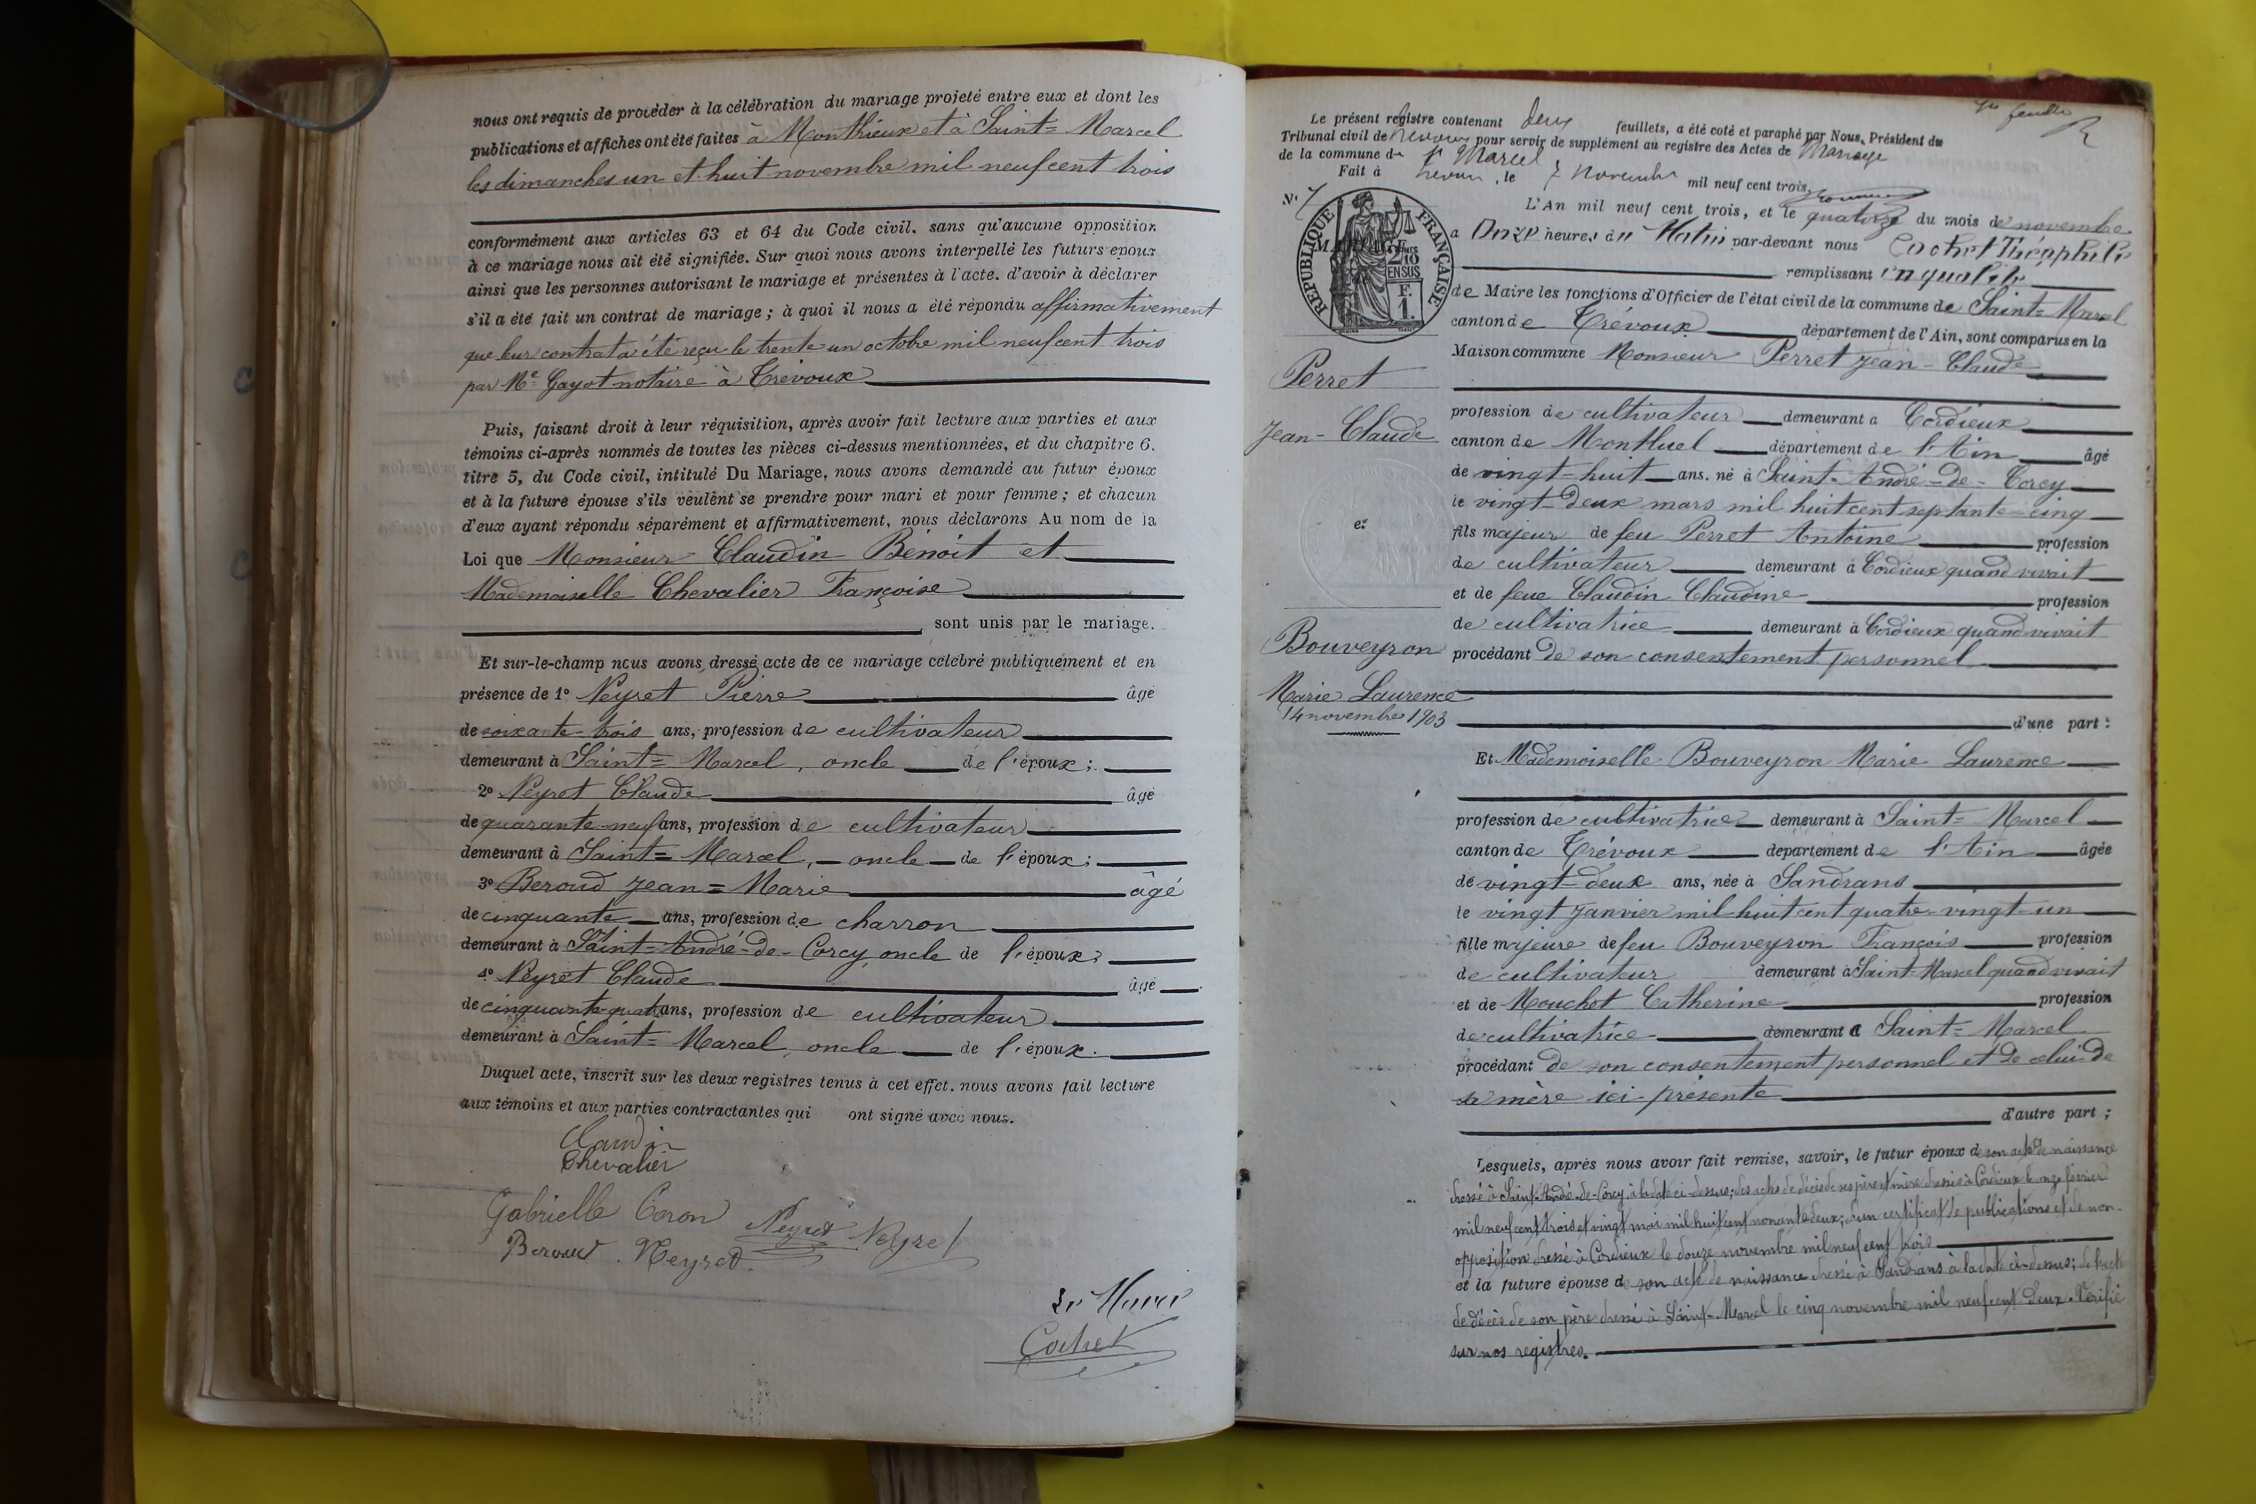 nous ont requis de procéder à la célébration du mariage projeté entre eux et dont les
publications et affiches ont été faites à Monthieux et à Saint=Marcel
les dimanches un et huit novembre mil neuf cent trois
conformément aux articles 63 et 64 du Code civil, sans qu'aucune opposition
à ce mariage nous ait été signifiée. Sur quoi nous avons interpellé les futurs époux
ainsi que les personnes autorisant le mariage et présentes à l'acte, d'avoir à déclarer
s'il a été fait un contrat de mariage ; à quoi il nous a été répondu affirmativement
que leur contrat a été reçu le trente-un octobre mil neuf cent trois
par Me Gayot notaire à Trévoux
Puis, faisant droit à leur réquisition, après avoir fait lecture aux parties et aux
témoins ci-après nommés de toutes les pièces ci-dessus mentionnées, et du chapitre 6,
titre 5, du Code civil, intitulé Du Mariage, nous avons demandé au futur époux
et à la future épouse s'ils veulent se prendre pour mari et pour femme ; et chacun
d'eux ayant répondu séparément et affirmativement, nous déclarons Au nom de la
Loi que Monsieur Claudin Benoit et
Mademoiselle Chevalier Françoise
sont unis par le mariage.
Et sur-le-champ nous avons dressé acte de ce mariage célébré publiquement et en
présence de 1° Neyret Pierre âgé
de soixante-trois ans, profession de cultivateur
demeurant à Saint=Marcel, oncle de l'époux ;
2° Neyret Claude âgé
de quarante-neuf ans, profession de cultivateur
demeurant à Saint=Marcel, oncle de l'époux ;
3° Beroud Jean=Marie âgé
de cinquante ans, profession de charron
demeurant à Saint=André-de-Corcy, oncle de l'époux ;
4° Neyret Claude âgé
de cinquante-quatre ans, profession de cultivateur
demeurant à Saint=Marcel, oncle de l'époux.
Duquel acte, inscrit sur les deux registres tenus à cet effet, nous avons fait lecture
aux témoins et aux parties contractantes qui ont signé avec nous.
Claudin
Chevalier
Gabrielle Coron Neyret Neyret
Beroud Neyret
Le Maire
Cochet
1re feuille
Le présent registre contenant deux feuillets, a été coté et paraphé par Nous, Président du
Tribunal civil de Trévoux pour servir de supplément au registre des Actes de Mariage
de la commune de St Marcel
Fait à Trévoux, le 7 novembre mil neuf cent trois
N° 7
RÉPUBLIQUE FRANÇAISE
MARIAGE
2/10
EN SUS
F.
1.
L'An mil neuf cent trois, et le quatorze du mois de novembre
à Onze heures du Matin par-devant nous Cochet Théophile
remplissant en qualité
de Maire les fonctions d'Officier de l'état civil de la commune de Saint=Marcel
canton de Trévoux département de l'Ain, sont comparus en la
Maison commune Monsieur Perret Jean-Claude
Perret
Jean-Claude
et
Bouveyron
Marie Laurence
14 novembre 1903
profession de cultivateur demeurant à Cordieux
canton de Montluel département de l'Ain âgé
de vingt-huit ans, né à Saint-André-de-Corcy
le vingt-deux mars mil huit cent septante-cinq
fils majeur de feu Perret Antoine profession
de cultivateur demeurant à Cordieux quand vivait
et de feue Claudin Claudine profession
de cultivatrice demeurant à Cordieux quand vivait
procédant de son consentement personnel
d'une part :
Et Mademoiselle Bouveyron Marie Laurence
profession de cultivatrice demeurant à Saint=Marcel
canton de Trévoux département de l'Ain âgée
de vingt-deux ans, née à Sandrans
le vingt janvier mil-huit cent quatre-vingt-un
fille majeure de feu Bouveyron François profession
de cultivateur demeurant à Saint=Marcel quand vivait
et de Mouchot Catherine profession
de cultivatrice demeurant à Saint=Marcel
procédant de son consentement personnel et de celui de
sa mère ici présente
d'autre part ;
Lesquels, après nous avoir fait remise, savoir, le futur époux de son acte de naissance
dressé à Saint-André-de-Corcy à la date ci-dessus ; des actes de décès de ses père et mère dressés à Cordieux le onze février
mil neuf cent trois et vingt mai mil huit cent nonante-deux ; d'un certificat de publications et de non-
opposition dressé à Cordieux le douze novembre mil neuf cent trois
et la future épouse de son acte de naissance dressé à Sandrans à la date ci-dessus ; de l'acte
de décès de son père dressé à Saint-Marcel le cinq novembre mil neuf cent deux. Vérifié
sur nos registres.